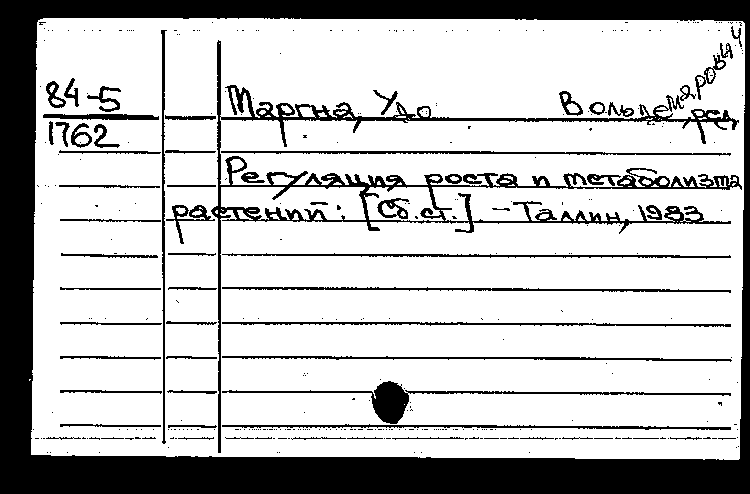 84-5
1762
Маргна, Удо Вольдемарович, ред.
Регуляция роста и метаболизма
растений: [Сб. ст.]. - Таллин, 1983